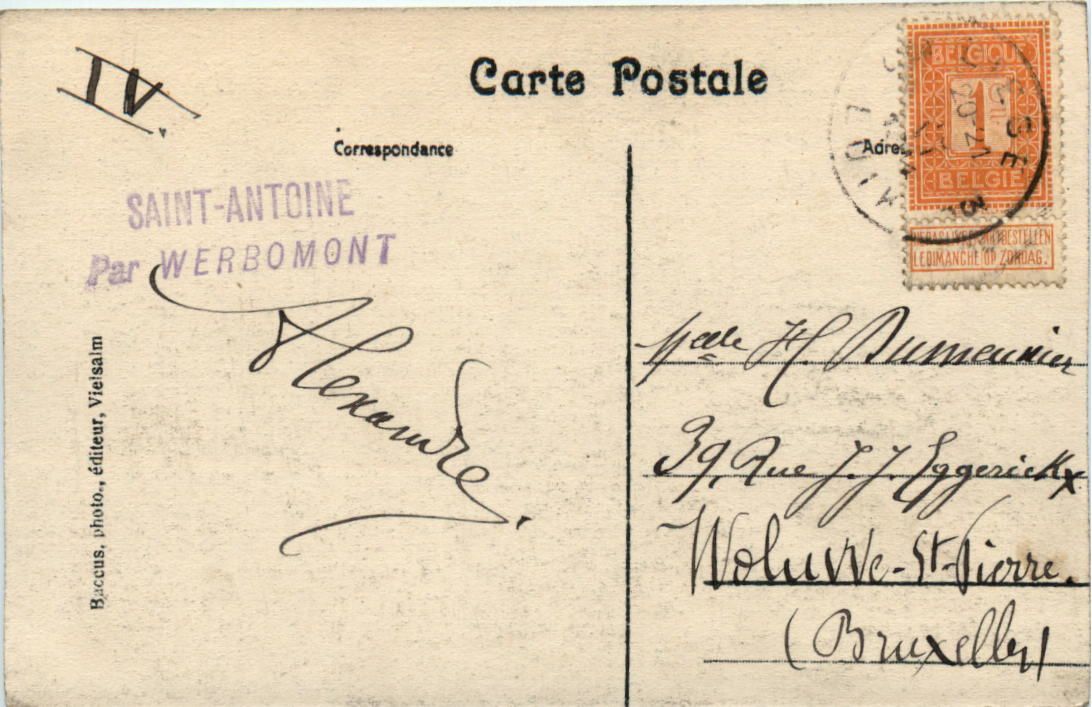 IV.
Carte Postale
Correspondance
SAINT-ANTOINE
Par WERBOMONT
Alexandre.
Baccus, photo., éditeur, Vielsalm
BELGIQUE
1
BELGIË
NE PAS LIVRER BESTELLEN
LE DIMANCHE OP ZONDAG.
Melle H. Dumeunier
39, Rue J. J. Eggerickx
Woluwe-St-Pierre.
(Bruxelles)